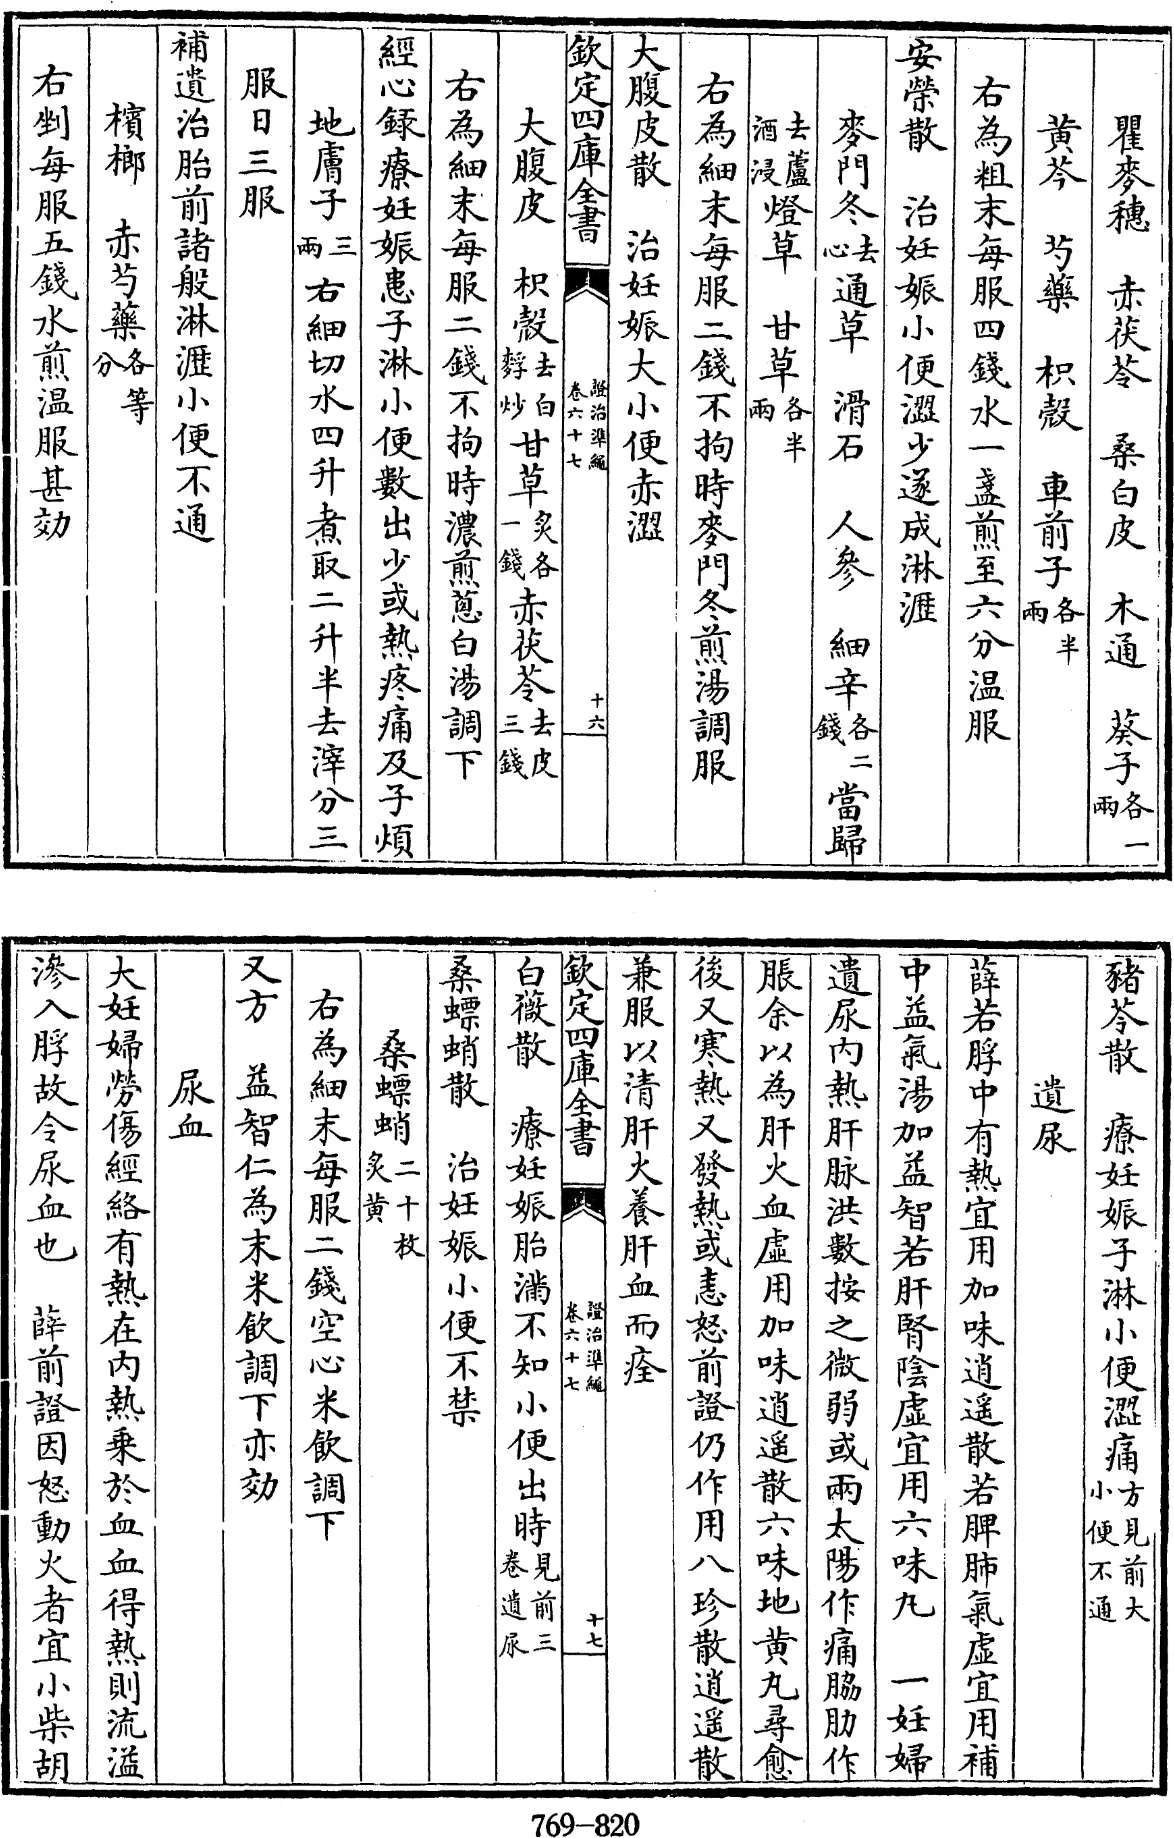 瞿麥穗　赤茯苓　桑白皮　木通　葵子各一兩
黄芩　芍藥　枳殼　車前子各半兩
右為粗末每服四錢水一盞煎至六分温服
安榮散　治妊娠小便澀少遂成淋瀝
麥門冬去心通草　滑石　人參　細辛各二錢當歸
去蘆酒浸燈草　甘草各半兩
右為細末每服二錢不拘時麥門冬煎湯調服
大腹皮散　治妊娠大小便赤澀
欽定四庫全書　證治準繩卷六十七　十六
大腹皮　枳殼去白麩炒甘草炙各一錢赤茯苓去皮三錢
右為細末每服二錢不拘時濃煎葱白湯調下
經心録療妊娠患子淋小便數出少或熱疼痛及子煩
地膚子三兩右細切水四升煮取二升半去滓分三
服日三服
補遺治胎前諸般淋瀝小便不通
檳榔　赤芍藥各等分
右剉每服五錢水煎温服甚効
豬苓散　療妊娠子淋小便澀痛方見前大小便不通
遺尿
薛若脬中有熱宜用加味逍遥散若脾肺氣虛宜用補
中益氣湯加益智若肝腎陰虛宜用六味丸　一妊婦
遺尿内熱肝脉洪數按之微弱或兩太陽作痛脇肋作
脹余以為肝火血虛用加味逍遥散六味地黄丸尋愈
後又寒熱又發熱或恚怒前證仍作用八珍散逍遥散
兼服以清肝火養肝血而痊
欽定四庫全書　證治準繩卷六十七　十七
白薇散　療妊娠胎滿不知小便出時見前三卷遺尿
桑螵蛸散　治妊娠小便不禁
桑螵蛸二十枚炙黄
右為細末每服二錢空心米飲調下
又方　益智仁為末米飲調下亦効
尿血
大妊婦勞傷經絡有熱在内熱乗於血血得熱則流溢
滲入脬故令尿血也　薛前證因怒動火者宜小柴胡
769—820